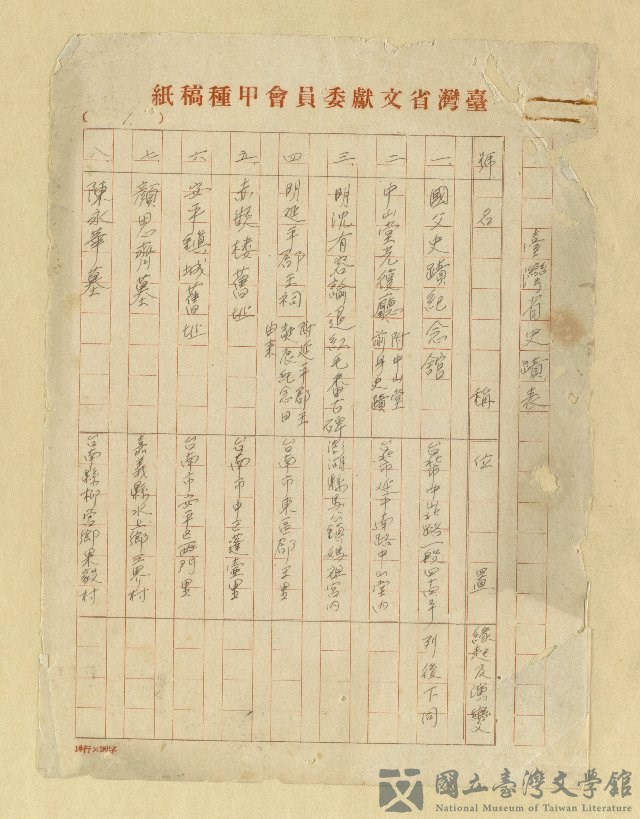 紙稿種甲會員委獻文省灣臺
臺灣省史蹟表
號 名稱 位置 緣起及演變
一 國父史蹟紀念館 台北市中山北路一段四六号 列後下同
二 中山堂光復廳 附中山堂前身史蹟 台北市延平南路中山堂內
三 明沈有容諭退紅毛番古碑 澎湖縣馬公鎮媽祖宮內
四 明延平郡王祠 附延平郡王焚衣紀念田由來 台南市東區郡王里
五 赤崁樓舊址 台南市中區蓬壺里
六 安平鎮城舊址 台南市安平區西門里
七 顏思齊墓 嘉義縣水上鄉三界村
八 陳永華墓 台南縣柳營鄉果毅村
國立臺灣文學館
National Museum of Taiwan Literature